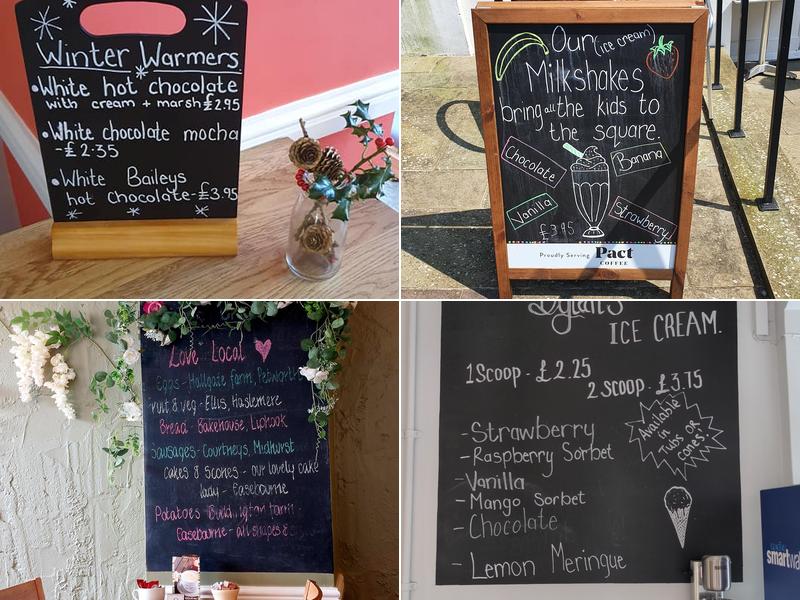 Winter Warmers
•White hot chocolate
with cream + marsh £2.95
•White chocolate mocha
-£2.35
•White Baileys
hot chocolate-£3.95
Our (ice cream)
Milkshakes
bring all the kids to
the square.
Chocolate
Banana
Vanilla
Strawberry
£3.95
Proudly Serving Pact
COFFEE
Love Local
Eggs - Hallgate farm, Petworth
ruit & veg - Ellis, Haslemere
Bread - Bakehouse, Liphook
Sausages - Courtneys, Midhurst
Cakes & Scones - our lovely cake
lady - Easebourne
Potatoes -
Easebourne - all shapes &
Dylan's
ICE CREAM.
1 Scoop - £2.25
2 Scoop - £3.75
Available
in
Tubs OR
cones!
- Strawberry
- Raspberry Sorbet
- Vanilla
- Mango Sorbet
- Chocolate
- Lemon Meringue
smartwa